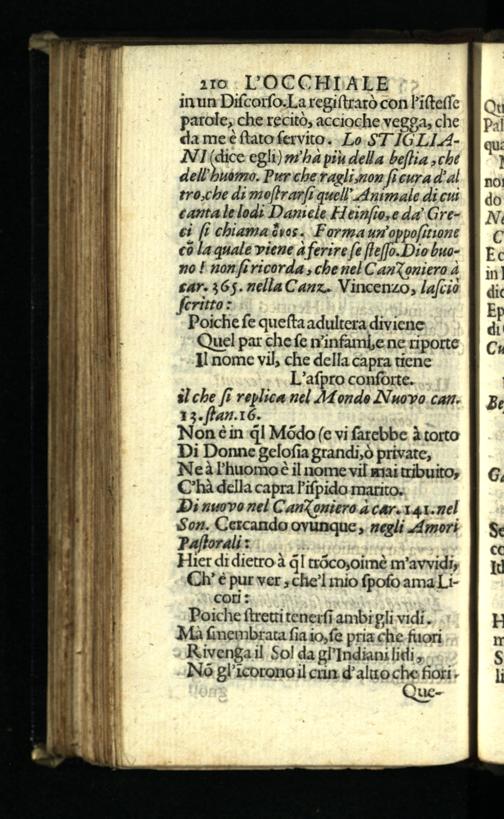 210 L'OCCHIALE
in un Discorso. La registrarò con l'istesse
parole, che recitò, accioche vegga, che
da me è stato servito. Lo STIGLIA-
NI (dice egli) m'hà più della bestia, che
dell'huomo. Pur che ragli, non si cura d'al
tro, che di mostrarsi quell'Animale di cui
canta le lodi Daniele Heinsio, e da' Gre-
ci si chiama ὄνος. Forma un'oppositione
cō la quale viene à ferire se stesso. Dio buo-
no! non si ricorda, che nel Canzoniero à
car. 365. nella Canz. Vincenzo, lasciò
scritto:
Poiche se questa adultera diviene
Quel par che se n'infami, e ne riporte
Il nome vil, che della capra tiene
L'aspro consorte.
il che si replica nel Mondo Nuovo can.
13. stan. 16.
Non è in q̄l Mōdo (e vi sarebbe à torto
Di Donne gelosia grandi, ò private,
Ne à l'huomo è il nome vil mai tribuito,
C'hà della capra l'ispido marito.
Di nuovo nel Canzoniero à car. 141. nel
Son. Cercando ovunque, negli Amori
Pastorali:
Hier di dietro à q̄l trōco, oimè m'avvidi,
Ch'è pur ver, che'l mio sposo ama Li-
cori:
Poiche stretti tenersi ambi gli vidi.
Mà smembrata sia io, se pria che fuori
Rivenga il Sol da gl'Indiani lidi,
Nō gl'icorono il crin d'altro che fiori.
Que-